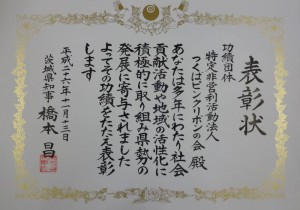 表彰状
功績団体
特定非営利活動法人
つくばピンクリボンの会 殿
あなたは多年にわたり社会
貢献活動や地域の活性化に
積極的に取り組み県勢の
発展に寄与されました
よってその功績をたたえ表彰
します
平成二十六年十一月十三日
茨城県知事 橋本昌